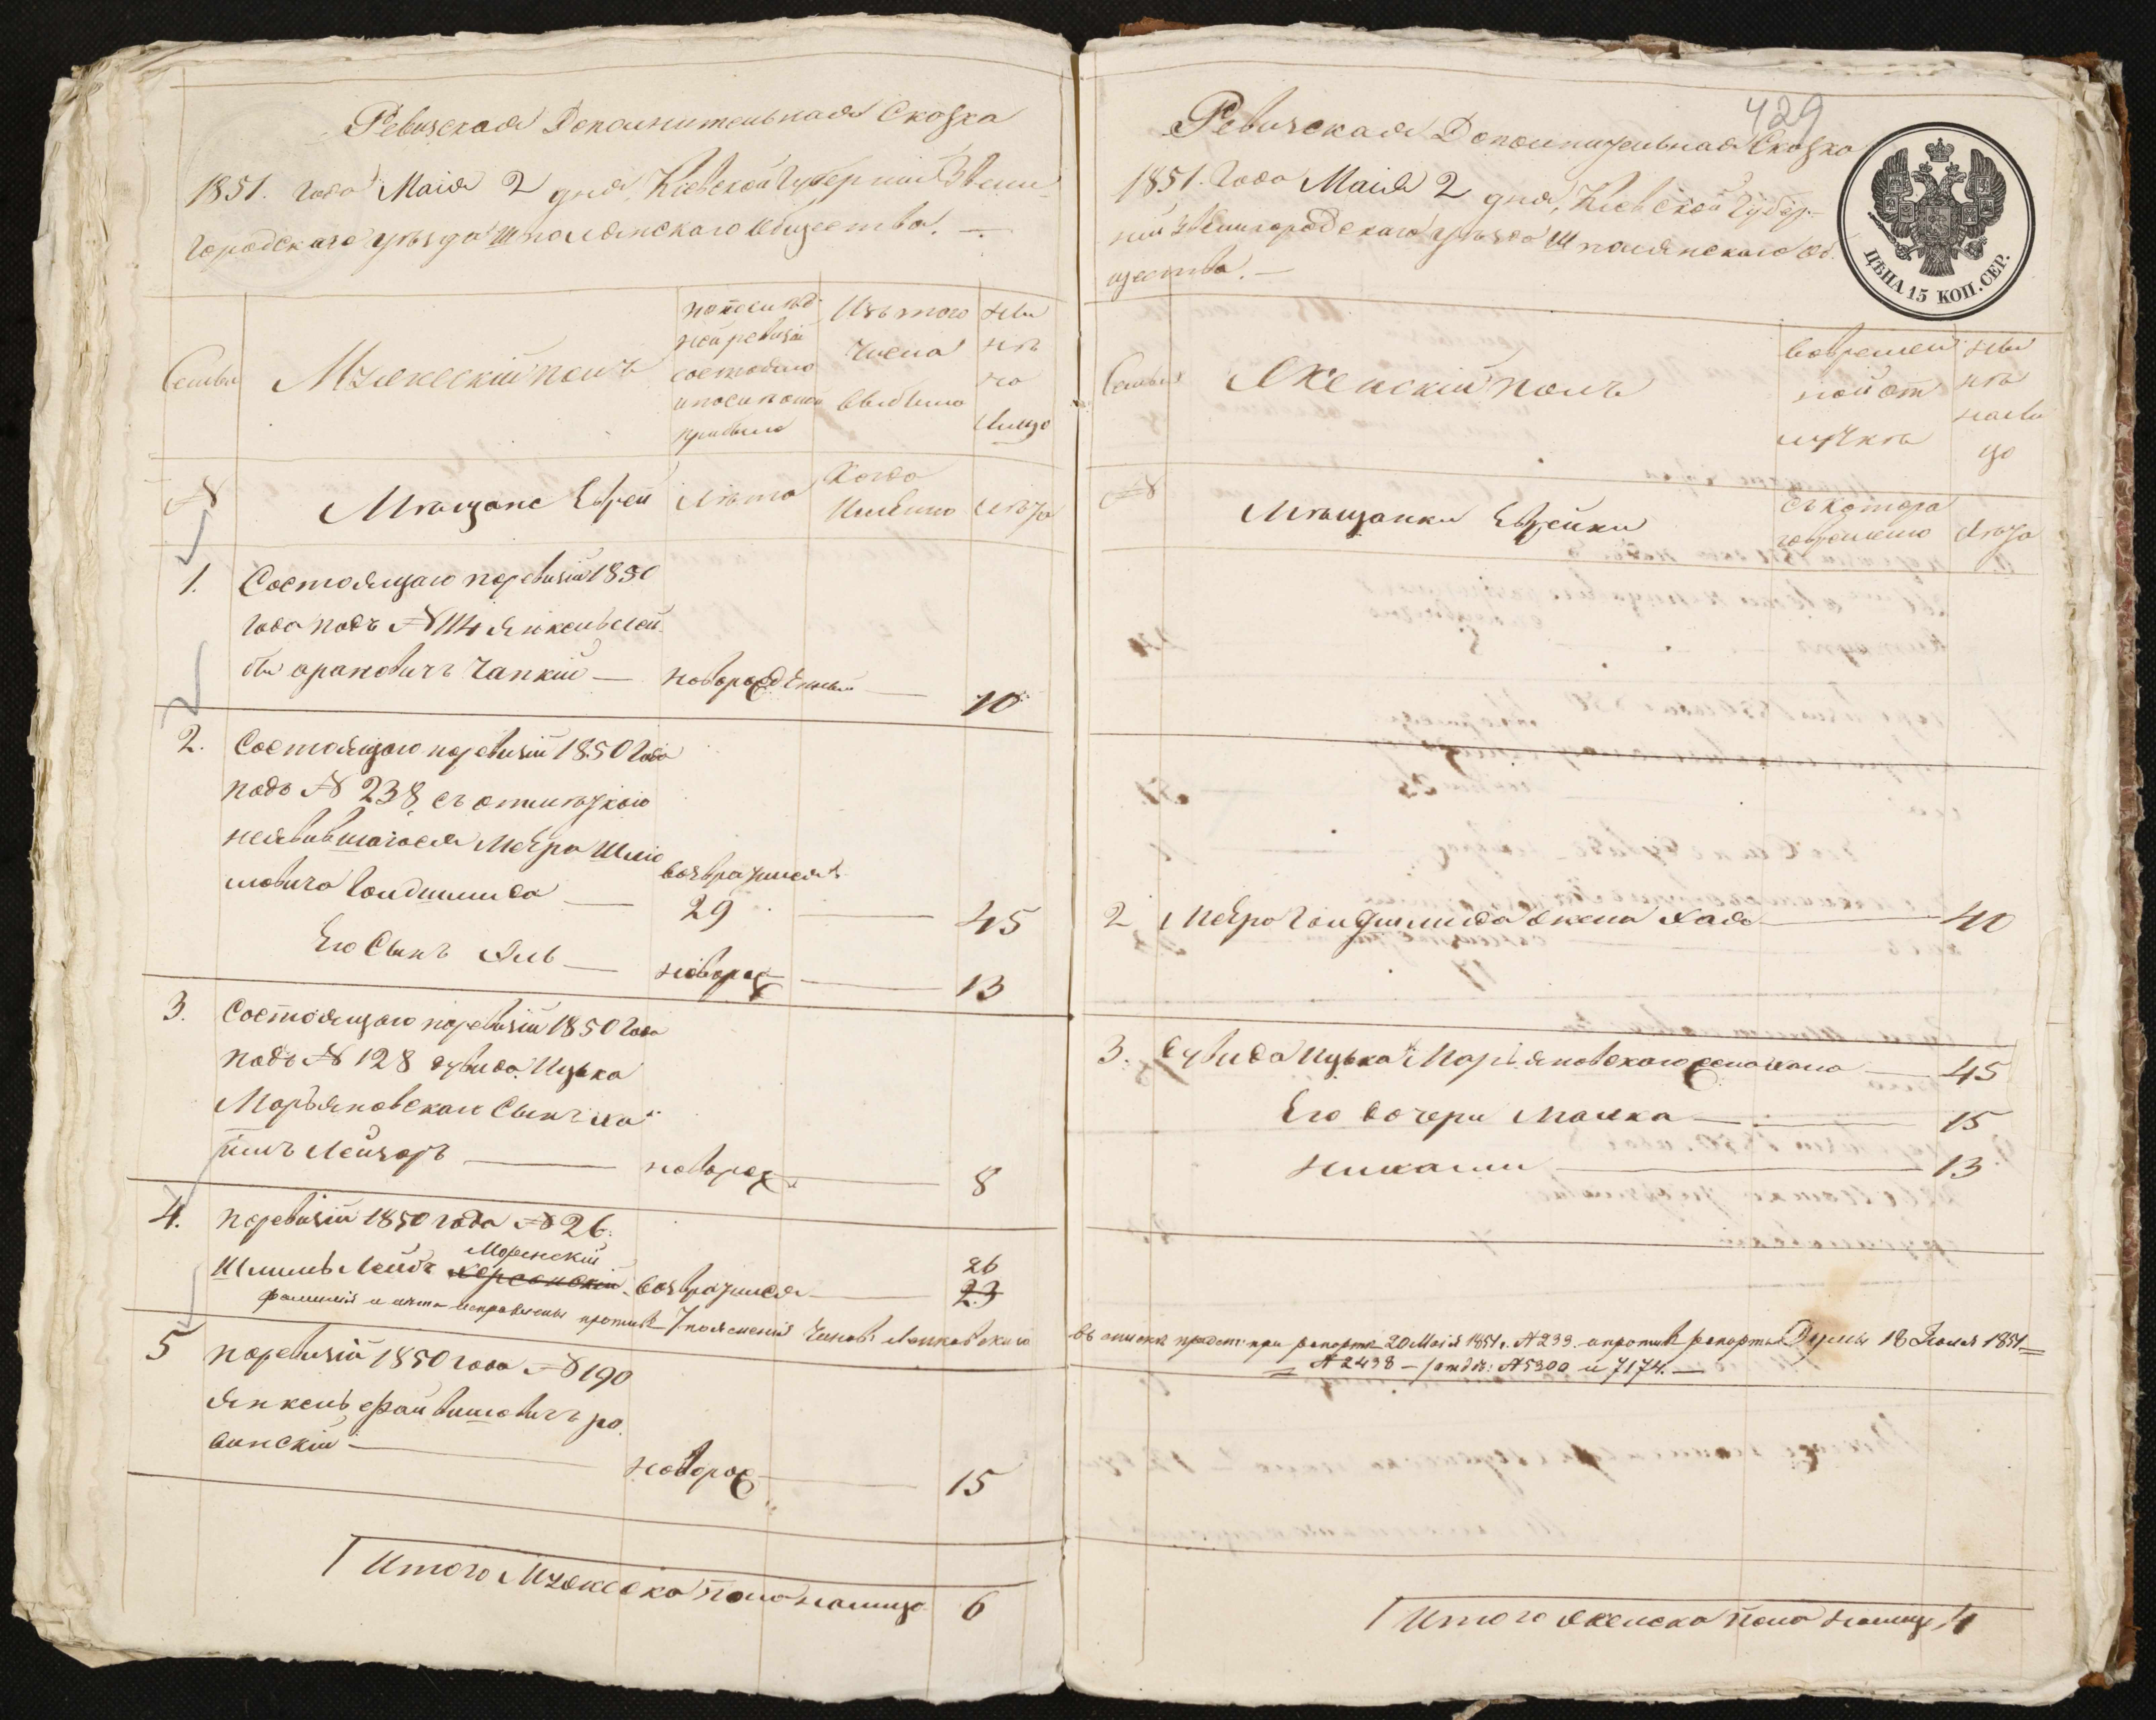 Ревизская Дополнительная Сказка
1851. года Маія 2 дня, Кіевской Губерніи Звени-
городскаго уѣзда Шполянскаго Общества.
Семьи
Мужескій полъ
по послѣд-
ней ревизіи
состояло
и после оной
прибыло
Изъ того
числа
выбыло
Ны
нѣ
на
лицо
№
Мѣщане Евреи
Лѣта
Когда
Имянно
Лѣта
1.
Состоящаго по ревизіи 1850
года подъ № 114 Янкель Лей-
бы Арановичъ Чапкій — новорожденный — 10
2.
Состоящаго по ревизіи 1850 года
подъ № 238, съ отмѣткою
неявившагося Меера Шмю
ловича Гольдшмида — возвратился 29 — 45
Его Сынъ Эль — новорож — 13
3.
Состоящаго по ревизіи 1850 года
подъ № 128 Дувида Ицька
Марьяновскаго Сынъ Ха-
имъ Лейзоръ — новорож. — 8
4.
по ревизіи 1850 года № 26.
Моренскій
26
Шмиль Лейбъ Херсонскій возвратился — 23
фамилія и лѣта исправлены противъ
5
по ревизіи 1850 года № 190
Янкель Файвишовичъ Ро
винскій — новорож — 15
Итого Мужеска пола налицо 6
429
Ревизская Дополнительная Сказка
1851. Года Маія 2 дня, Кіевской Губер-
ніи Звенигородскаго уѣзда Шполянскаго Об-
щества. —
ЦѢНА 15 КОП. СЕР.
Семьи
Женскій полъ
Во времен
ной от
лучкѣ
Ны
нѣ
нали
цо
№
Мѣщанки Еврейки
Съ котора
го времено
Лѣта
2
Меера Гольдшмида жена Хая — 40
3.
Дувида Ицька Марьяновскаго жена — 45
Его дочери Малка — 15
— 13
при рапортѣ 20 Маія 1851 г. № 239. а противъ рапорта Думы 18 Іюля 1851.
№ 2438 — № 5300 и 7174. —
Итого женска пола налицо 4